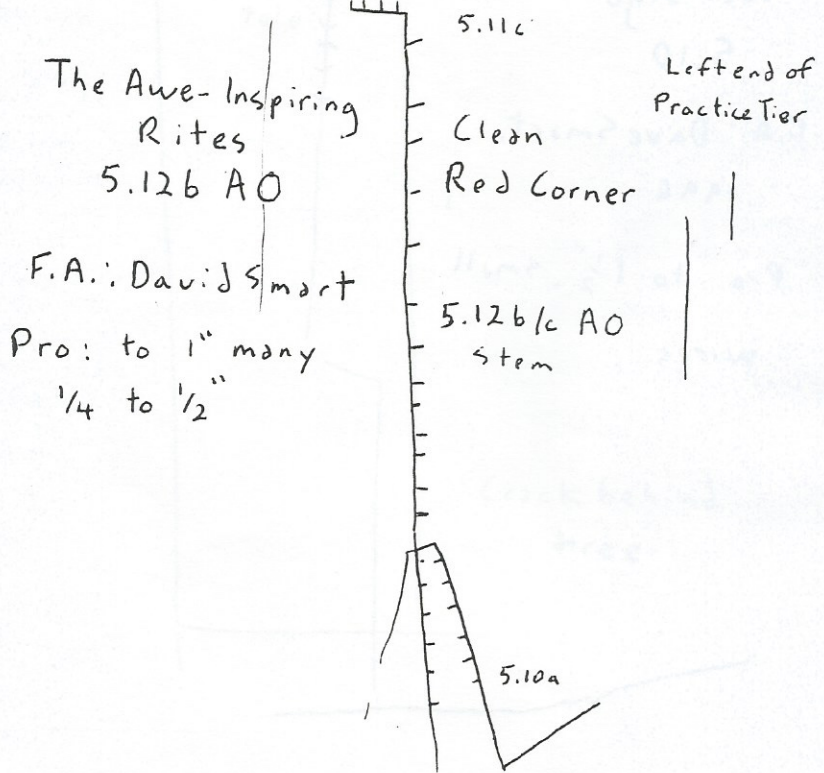 The Awe-Inspiring
Rites
5.12b AO
F.A.: David Smart
Pro: to 1" many
1/4 to 1/2"
5.11c
Clean
Red Corner
5.12b/c AO
stem
5.10a
Left end of
Practice Tier